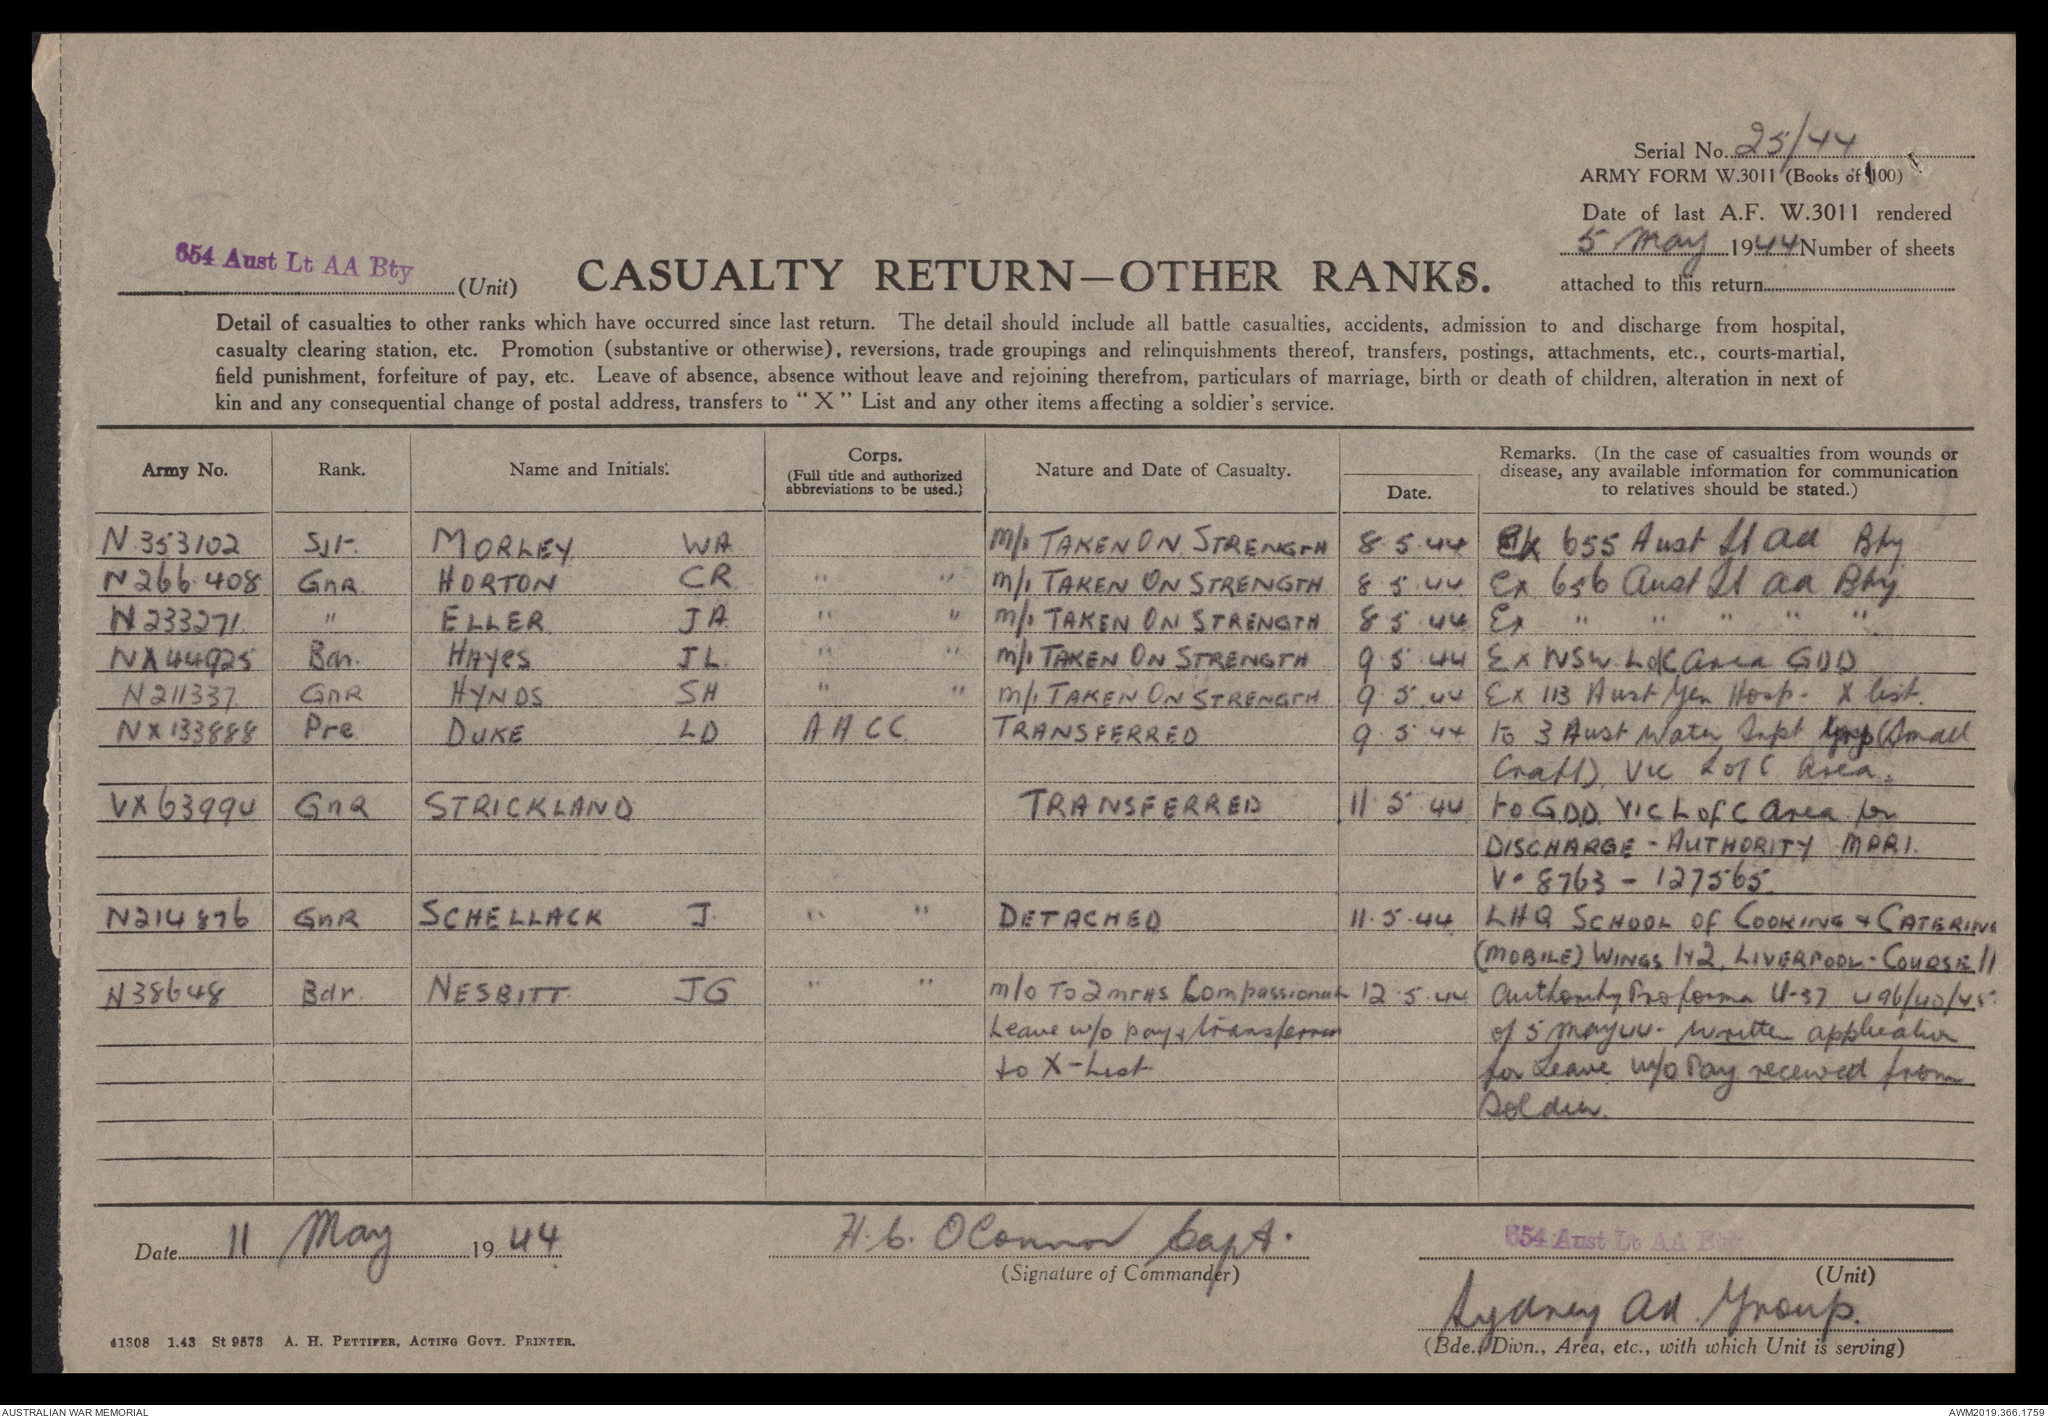 Serial No. 25/44
ARMY FORM W.3011 (Books of 100)
Date of last A.F. W.3011 rendered
5 May 1944 Number of sheets
attached to this return
654 Aust Lt AA Bty
(Unit)
CASUALTY RETURN—OTHER RANKS.
Detail of casualties to other ranks which have occurred since last return. The detail should include all battle casualties, accidents, admission to and discharge from hospital,
casualty clearing station, etc. Promotion (substantive or otherwise), reversions, trade groupings and relinquishments thereof, transfers, postings, attachments, etc., courts-martial,
field punishment, forfeiture of pay, etc. Leave of absence, absence without leave and rejoining therefrom, particulars of marriage, birth or death of children, alteration in next of
kin and any consequential change of postal address, transfers to "X" List and any other items affecting a soldier's service.
Army No. Rank. Name and Initials. Corps. (Full title and authorized abbreviations to be used.) Nature and Date of Casualty. Date. Remarks. (In the case of casualties from wounds or disease, any available information for communication to relatives should be stated.)
N353102 Sjt. MORLEY WA m/i TAKEN ON STRENGTH 8.5.44 Ex 655 Aust Lt aa Bty
N266408 GnR HORTON CR " " m/i TAKEN ON STRENGTH 8.5.44 Ex 656 Aust Lt aa Bty
N233271 " ELLER JA " " m/i TAKEN ON STRENGTH 8.5.44 Ex " " " " "
NX44925 Bdr. HAYES JL " " m/i TAKEN ON STRENGTH 9.5.44 Ex NSW. LofC area GDD
N211337 GnR HYNDS SH " " m/i TAKEN ON STRENGTH 9.5.44 Ex 113 Aust Gen Hosp. X list.
NX133888 Pre DUKE LD AACC TRANSFERRED 9.5.44 to 3 Aust Water Tnpt (Small
Craft) Vic LofC Area.
VX63994 GnR STRICKLAND TRANSFERRED 11.5.44 to G.D.D. VIC LofC Area for
DISCHARGE - AUTHORITY MARI.
V. 8763 - 127565
N214876 GnR SCHELLACK J. " " DETACHED 11.5.44 LHQ SCHOOL OF COOKING & CATERING
(MOBILE) WINGS 1&2, LIVERPOOL - COURSE 11
N38648 Bdr. NESBITT JG " " m/o TO 2 mths Compassionate 12.5.44 Authority Proforma U-37 496/40/45
Leave w/o pay & transferred of 5 May 44. written application
to X-List for Leave w/o Pay received from
Soldier.
Date 11 May 1944
H.C. OConnor Capt.
(Signature of Commander)
654 Aust Lt AA Bty
(Unit)
Sydney aa Group.
(Bde., Divn., Area, etc., with which Unit is serving)
41308 1.43 St 9573 A. H. PETTIFER, ACTING GOVT. PRINTER.
AUSTRALIAN WAR MEMORIAL
AWM2019.366.1759